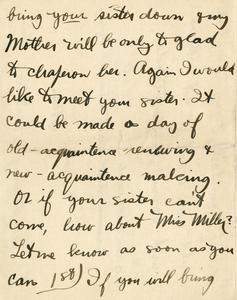 bring your sister down & my
Mother will be only to glad
to chaperon her. Again I would
like to meet your sister. It
could be made a day of
old-acquaintence renewing &
new-acquaintence making.
Or if your sister can't
come, how about Miss Miller?
Let me know as soon as you
can 1st) If you will bring